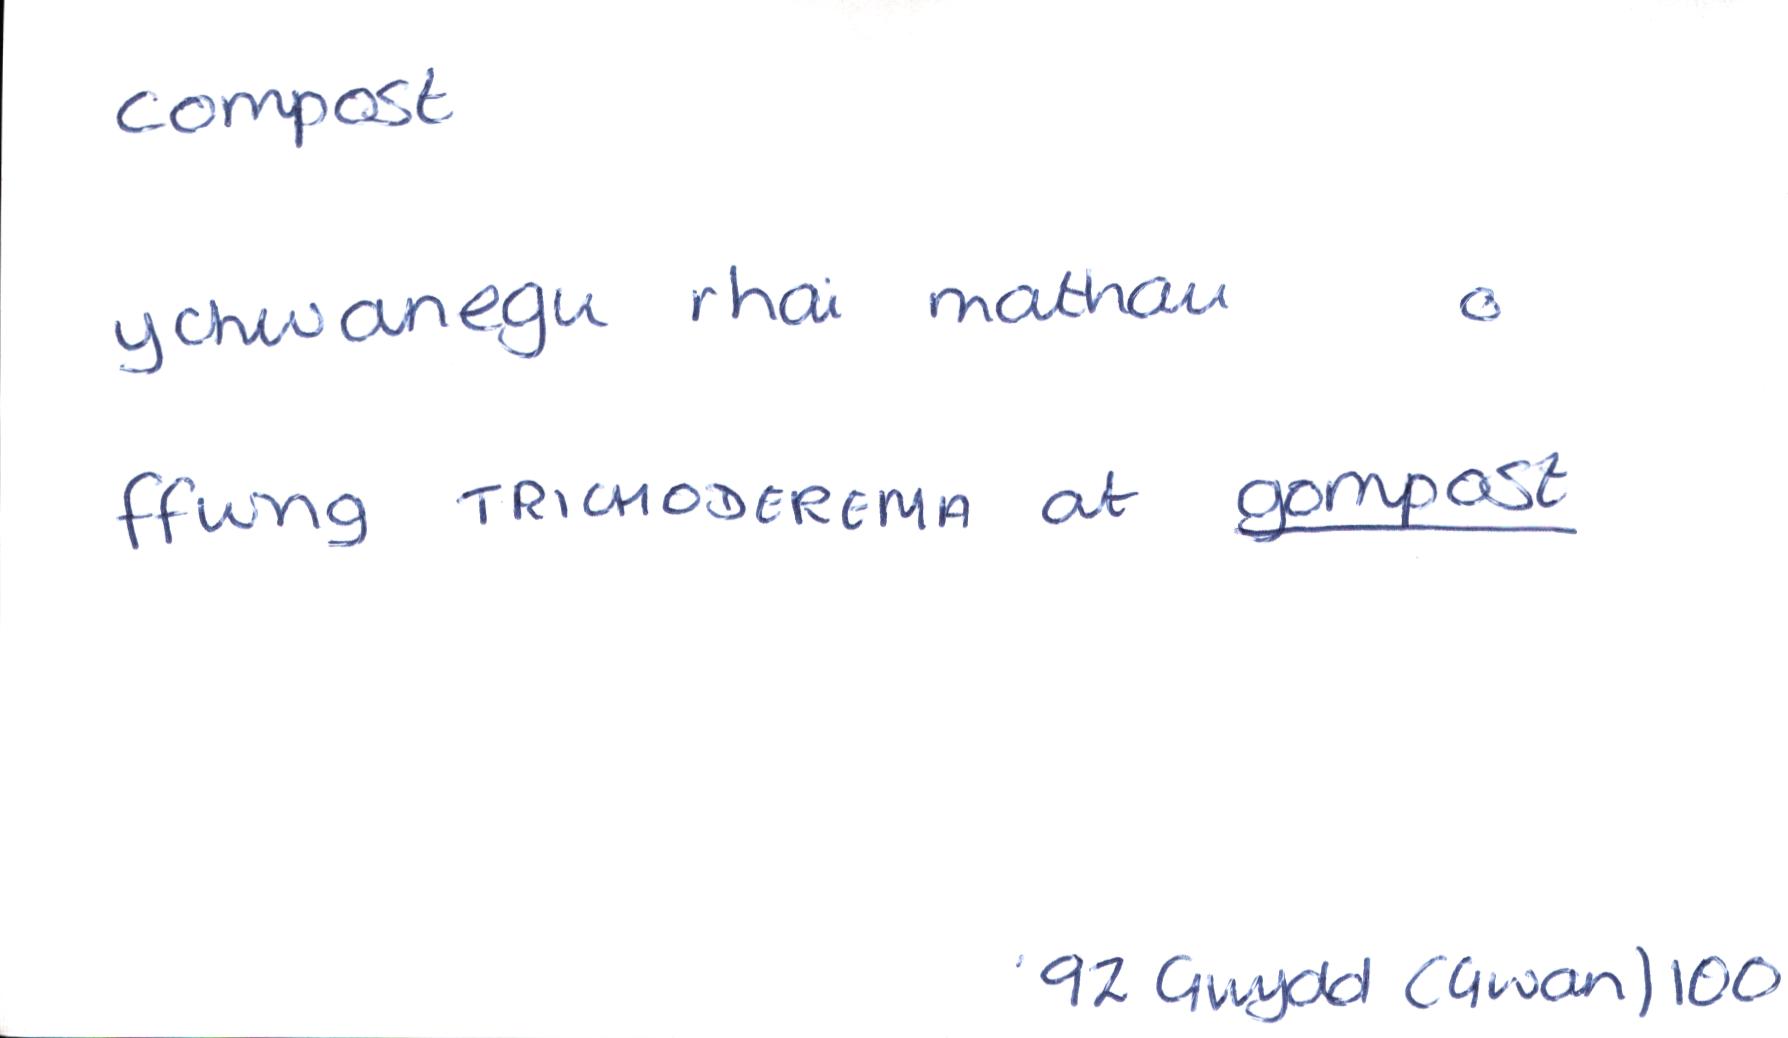 compost
ychwanegu rhai mathau o
ffwng TRICHODEREMA at gompost
'92 Gwydd (Gwan) 100